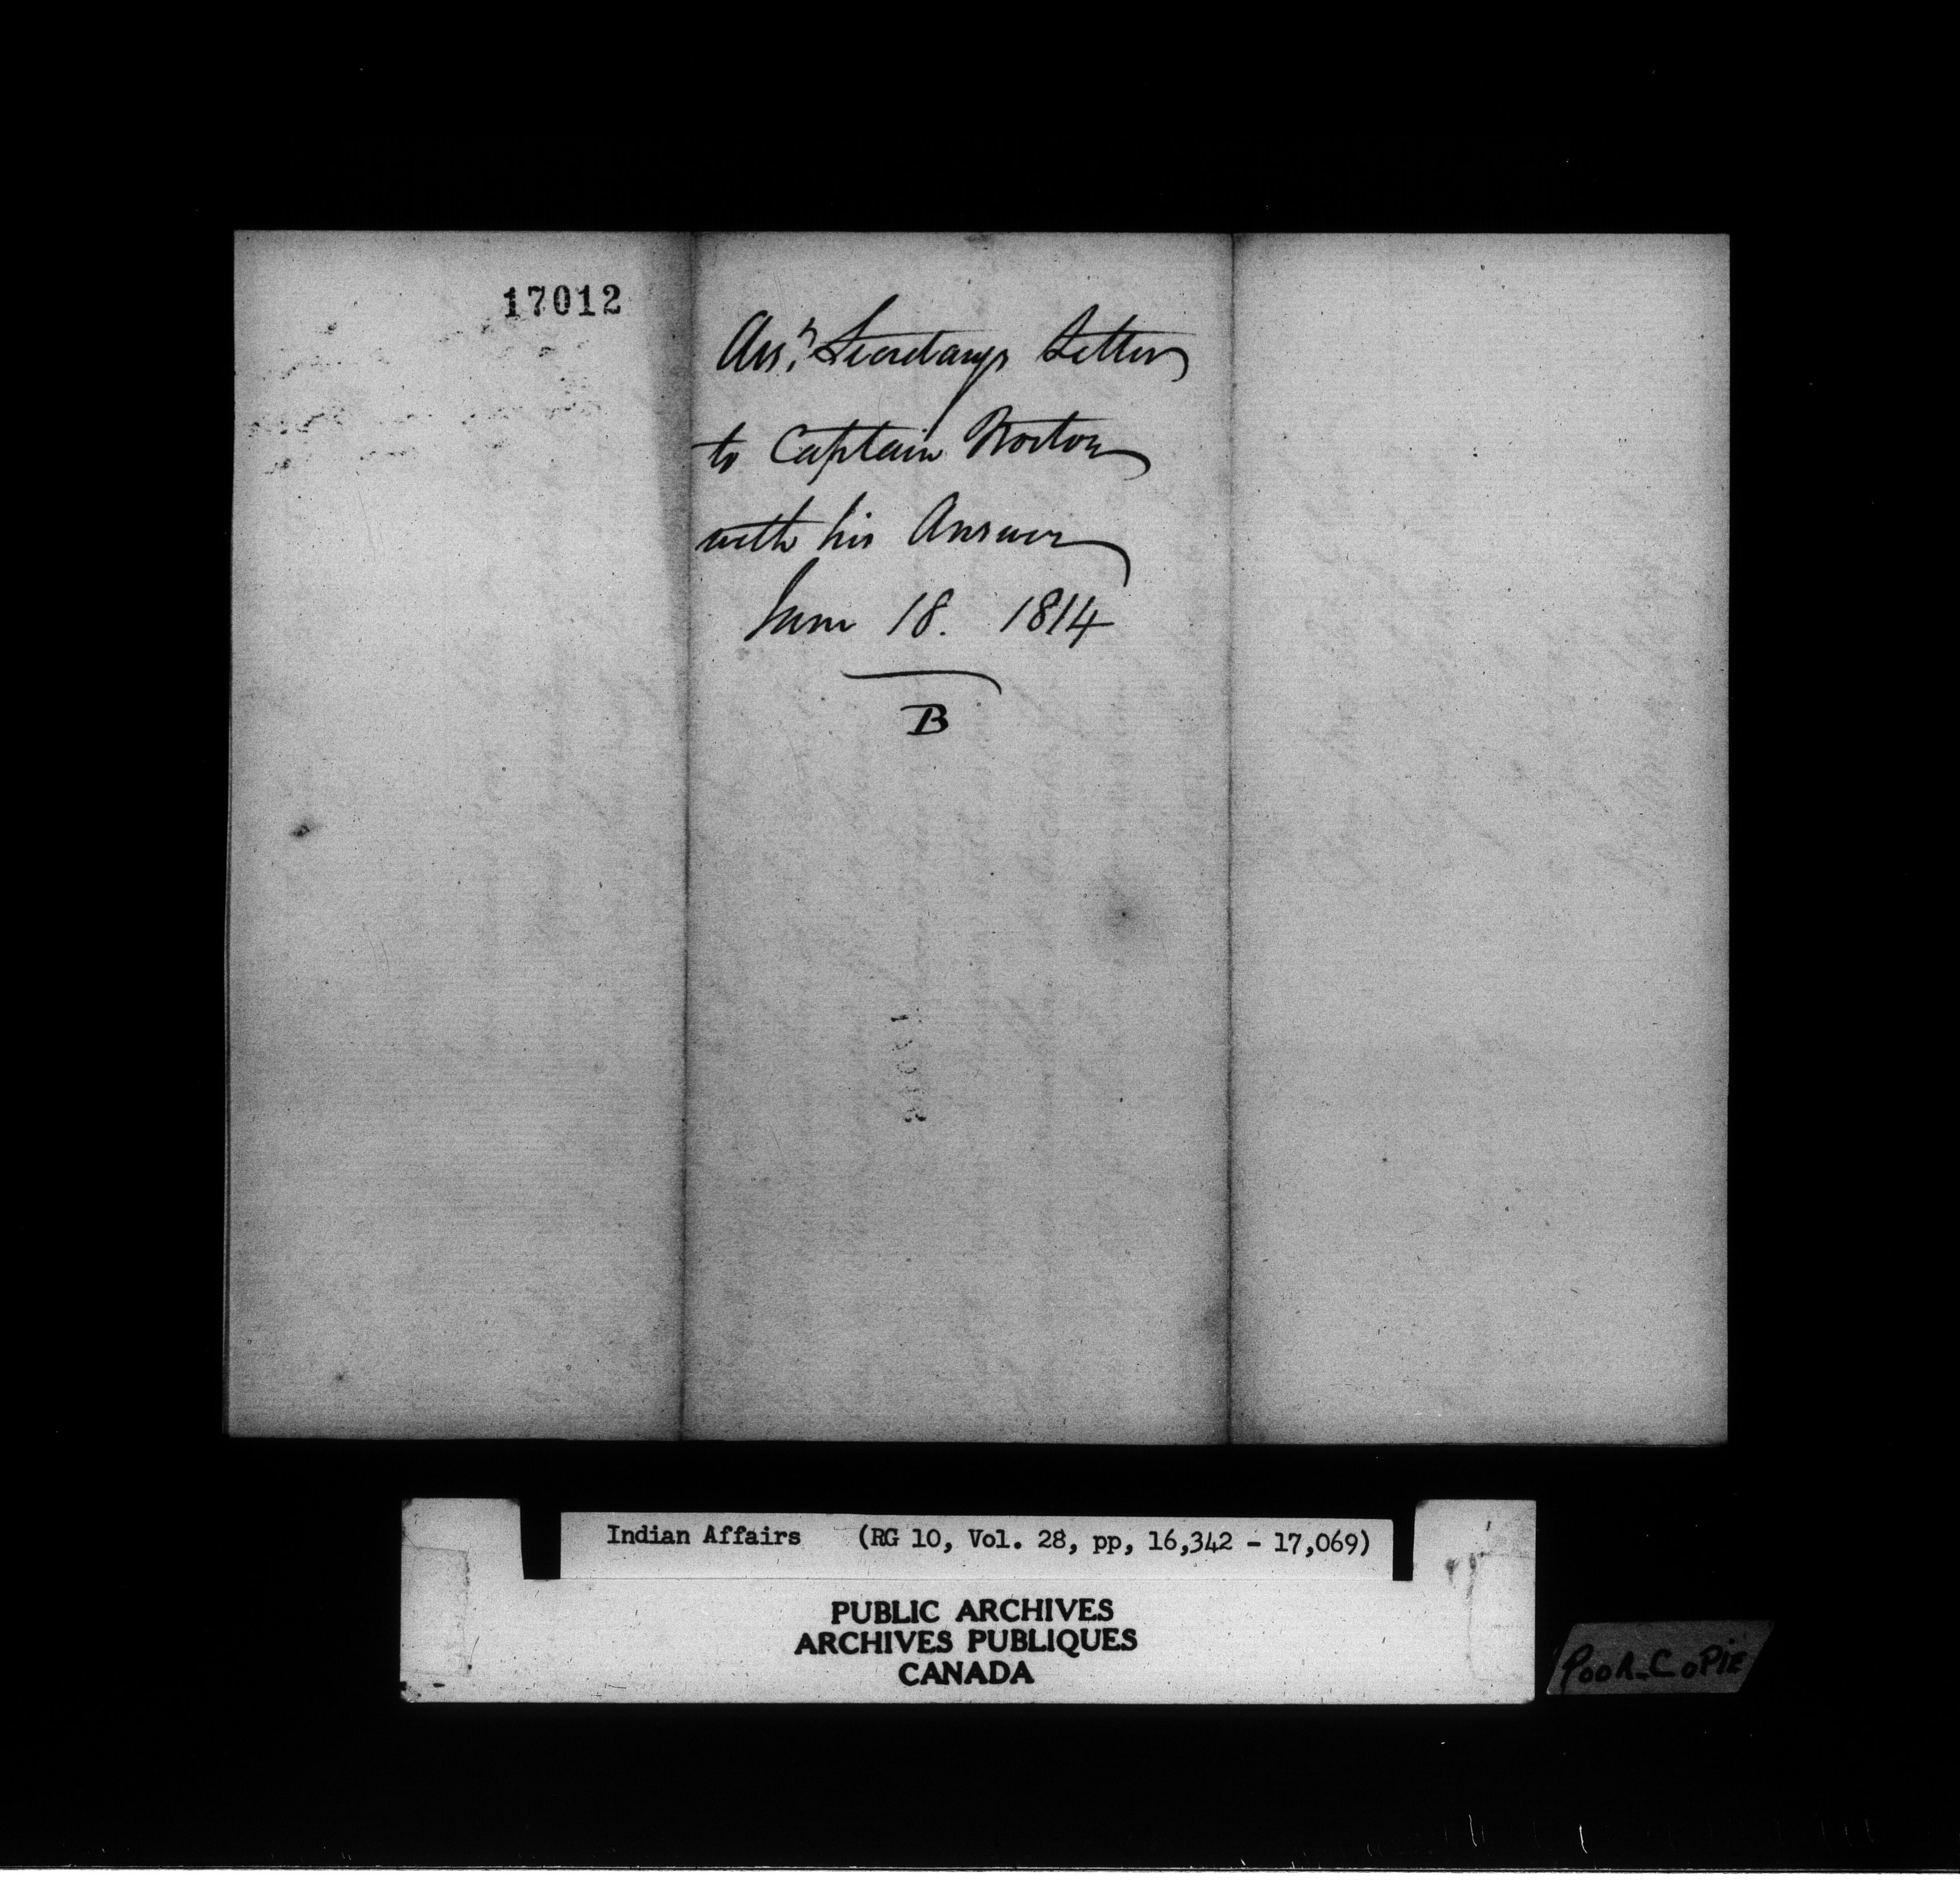 17012
Ass.t Secretarys Letter
to Captain Norton
with his Answer
June 18. 1814
B
Indian Affairs (RG 10, Vol. 28, pp, 16,342 - 17,069)
PUBLIC ARCHIVES
ARCHIVES PUBLIQUES
CANADA
POOR-COPIE